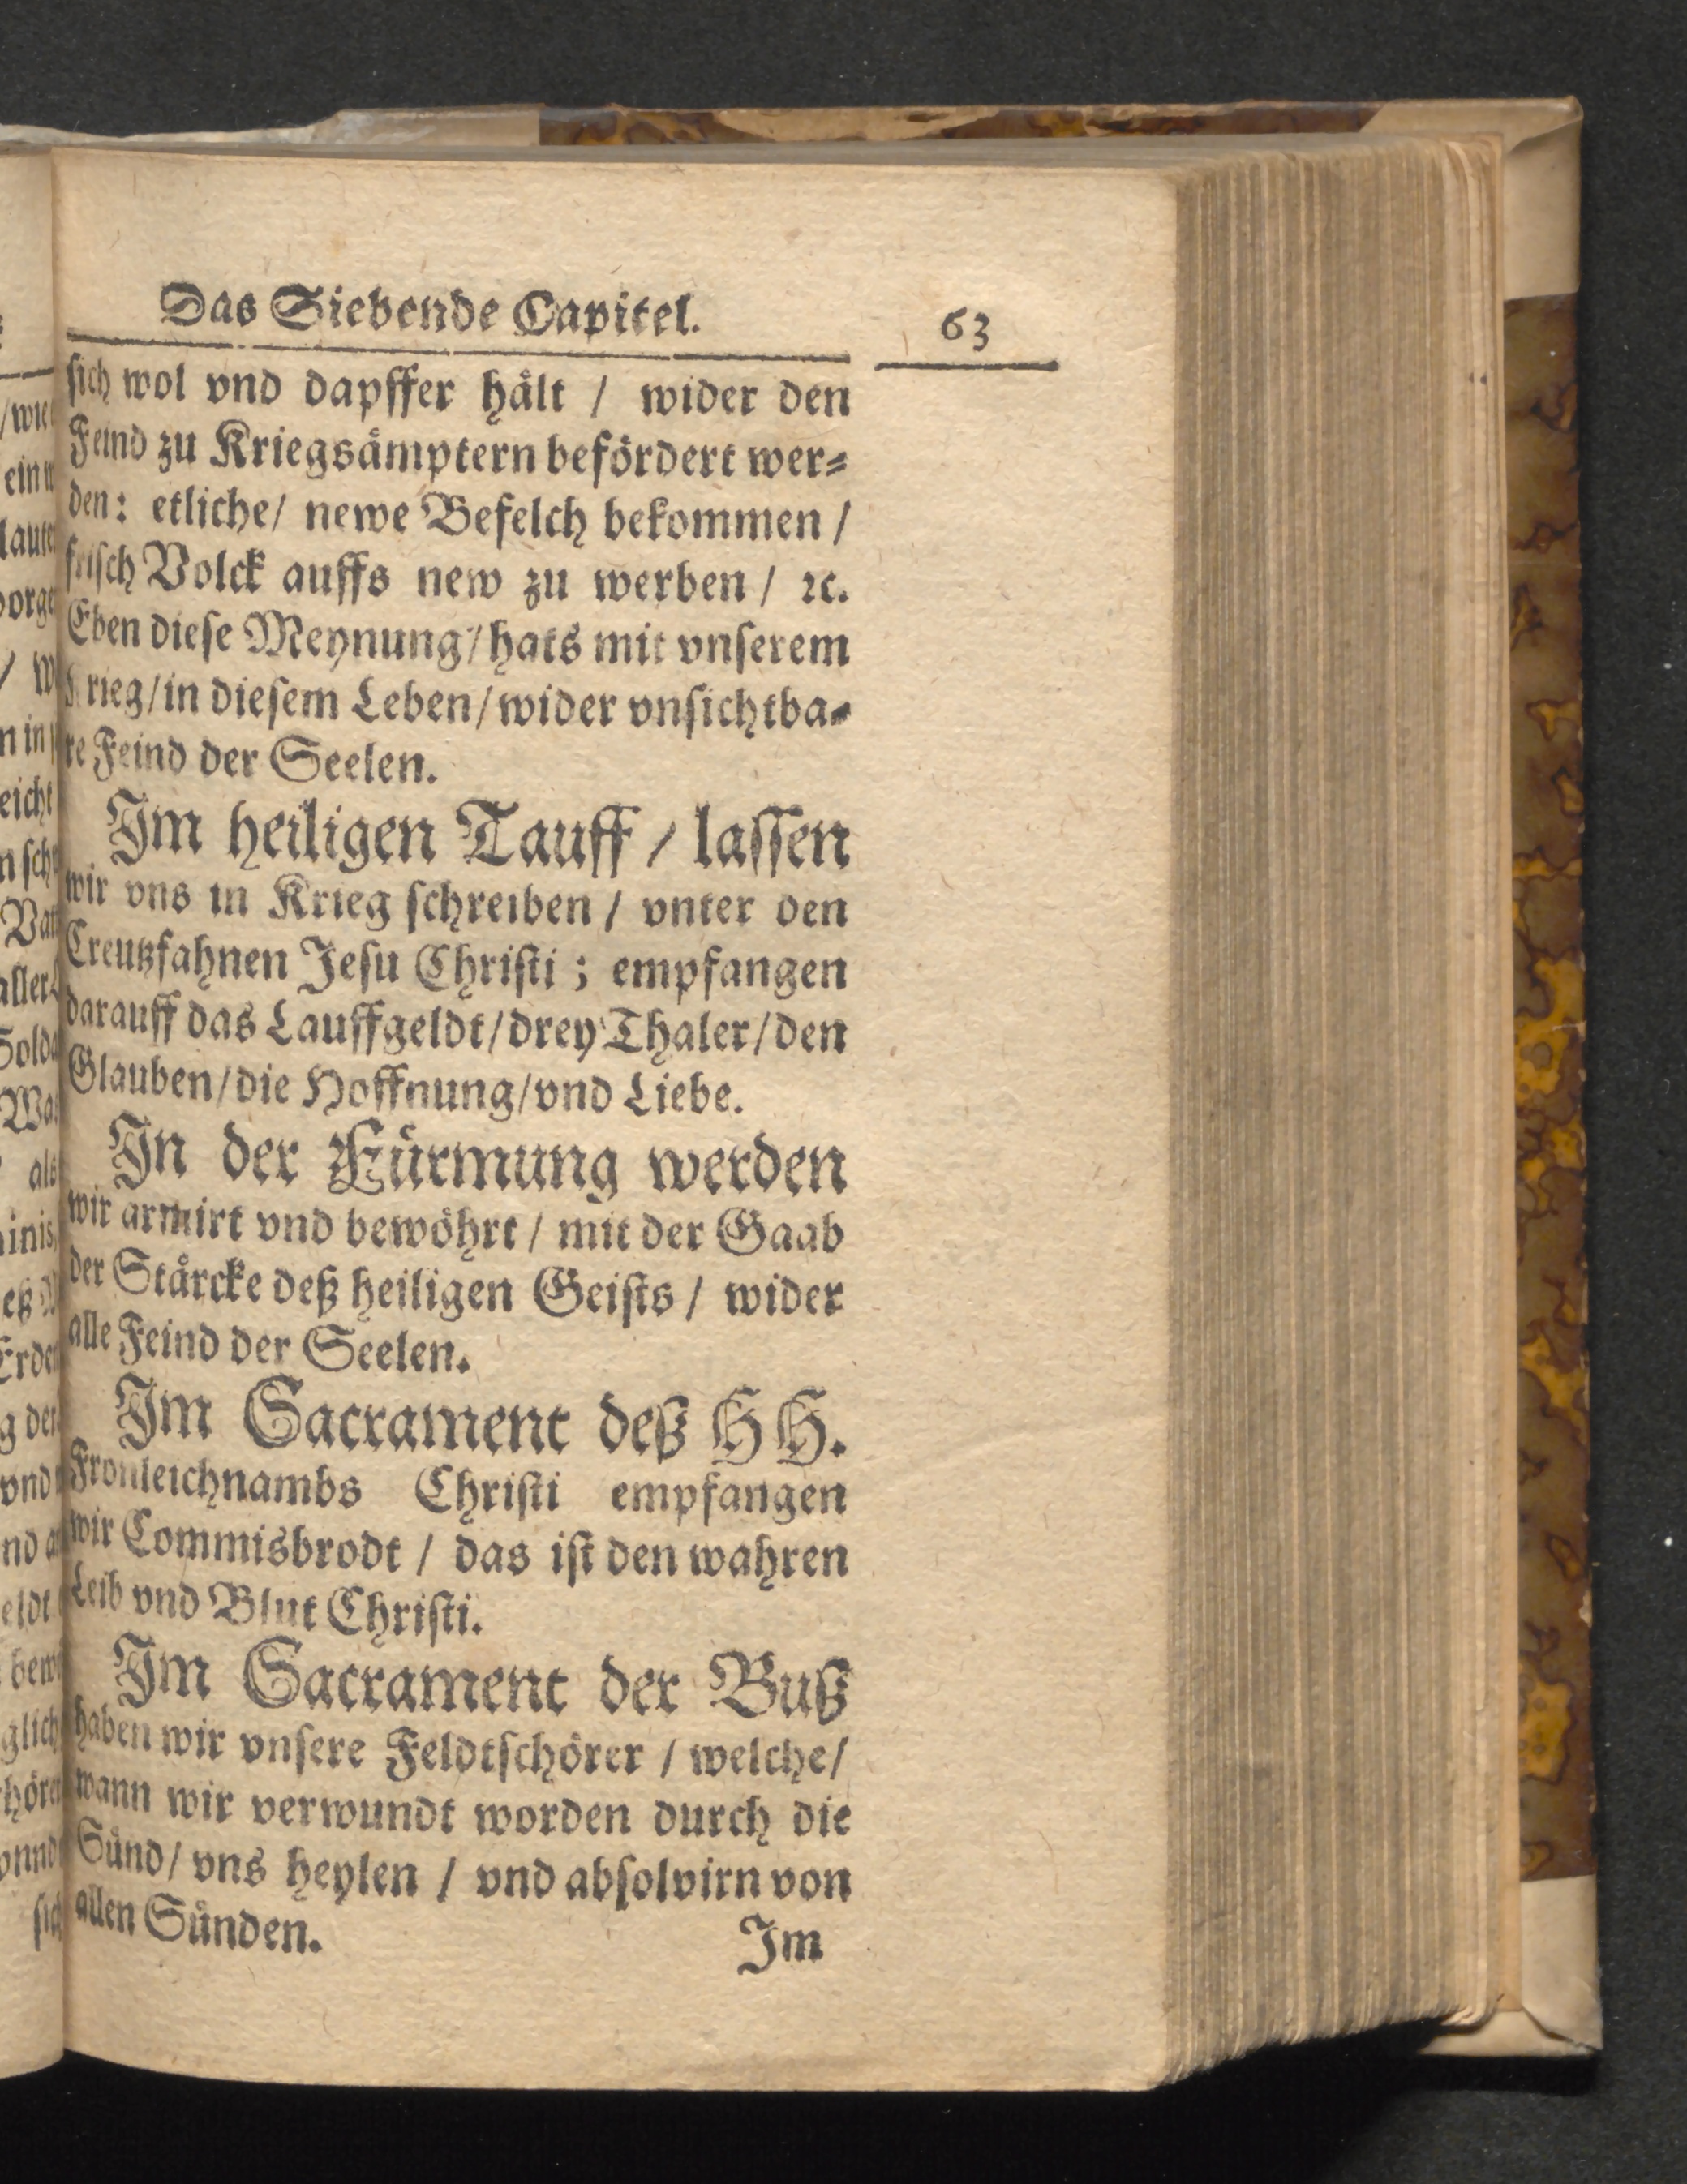 Das Siebende Capitel. 63
sich wol vnd dapffer hält / wider den
Feind zu Kriegsämptern befördert wer⸗
den: etliche/ newe Befelch bekommen /
frisch Volck auffs new zu werben / ꝛc.
Eben diese Meynung/ hats mit vnserem
Krieg/in diesem Leben/wider vnsichtba⸗
re Feind der Seelen.
Im heiligen Tauff / lassen
wir vns in Krieg schreiben / vnter den
Creutzfahnen Jesu Christi; empfangen
darauff das Lauffgeldt/drey Thaler/den
Glauben/die Hoffnung/vnd Liebe.
In der Fürmung werden
wir armirt vnd bewöhrt / mit der Gaab
der Stärcke deß heiligen Geists / wider
alle Feind der Seelen.
Im Sacrament deß HH.
Fronleichnambs Christi empfangen
wir Commisbrodt / das ist den wahren
Leib vnd Blut Christi.
Im Sacrament der Buß
haben wir vnsere Feldtschörer / welche/
wann wir verwundt worden durch die
Sünd/ vns heylen / vnd absolvirn von
allen Sünden.
Im